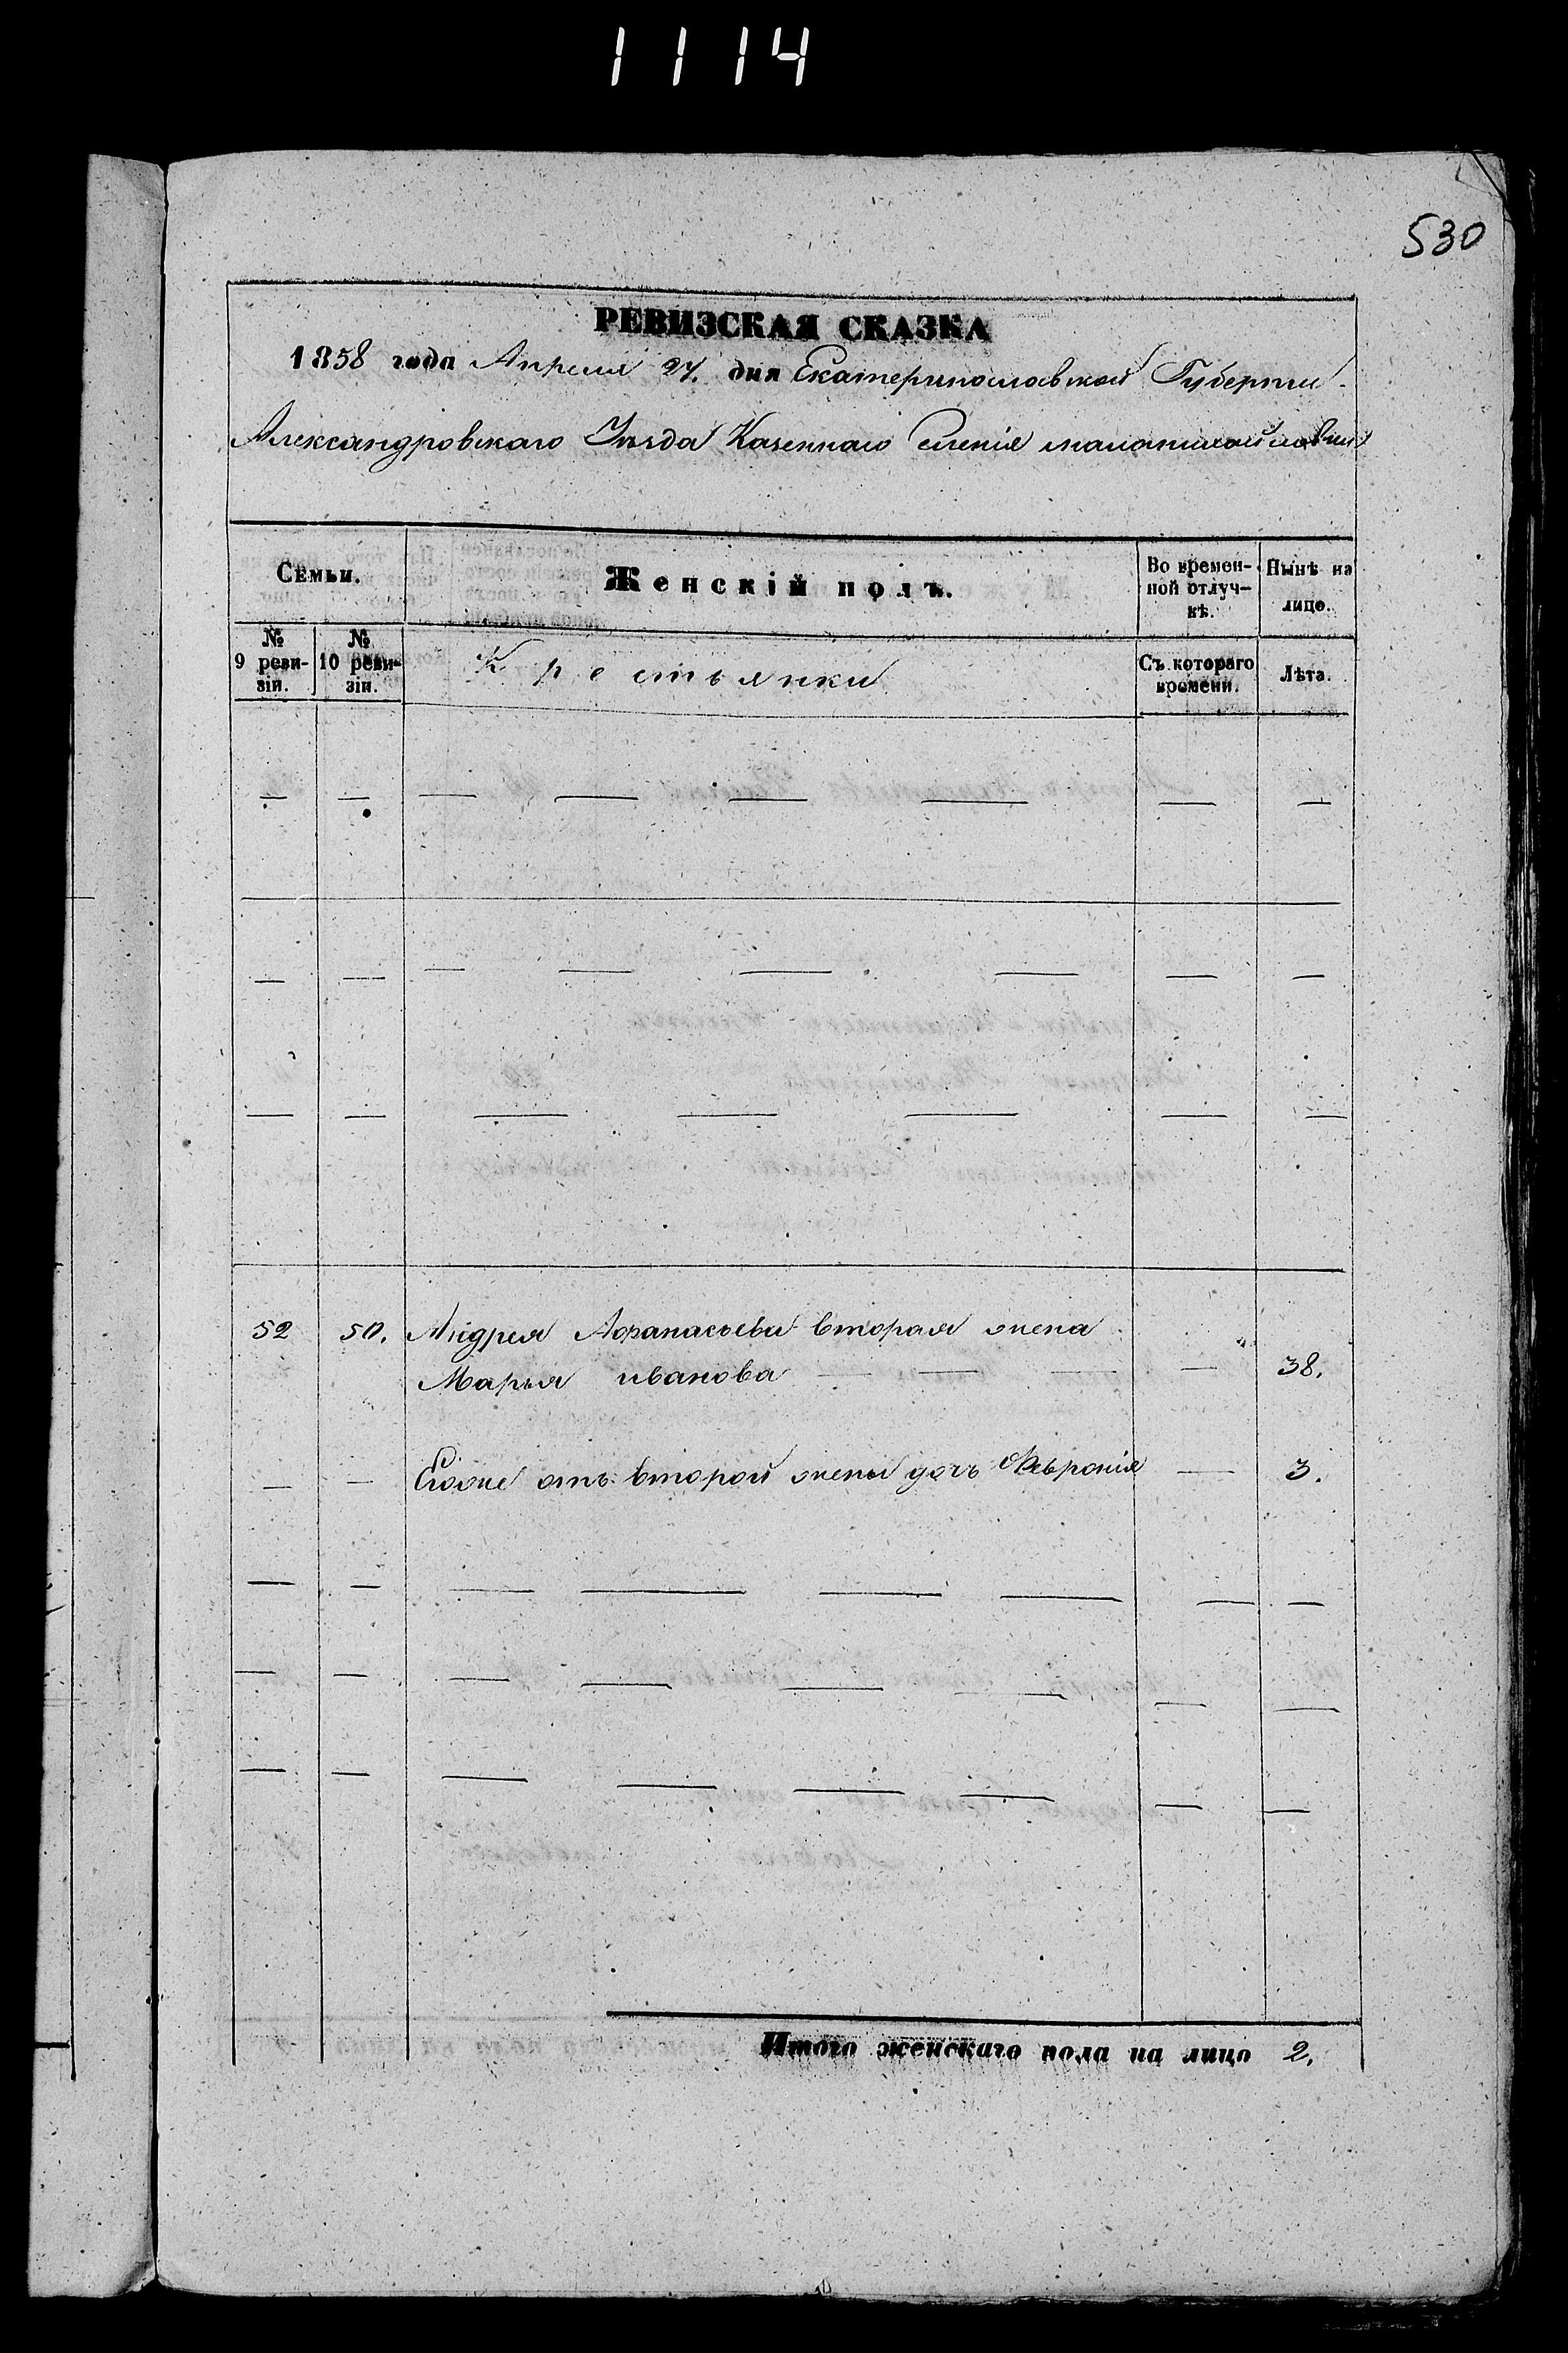 1114
530
РЕВИЗСКАЯ СКАЗКА
1858 года Апреля 27. дня Екатеринославской Губернии
Александровскаго Уезда Казеннаго Селенія
Семьи.
Женскій полъ.
Во времен-
ной отлуч-
кѣ.
Нынѣ на
лицо.
№
9 реви-
зіи.
№
10 реви-
зіи.
Крестьянки
Съ котораго
времени.
Лѣта.
— — — — — — — —
— — — — — — — —
— — — — — — —
52 50. Андрея Афанасьева вторая жена
Марья иванова — — — — 38.
— — Егоже отъ второй жены дочь Февронія — 3.
— — — — — — — —
— — — — — — — —
— — — — — — — —
Итого женскаго пола на лицо 2.